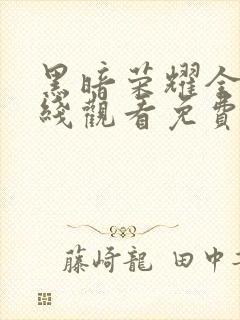 黑暗荣耀全
綫觀看免費
藤崎龍 田中